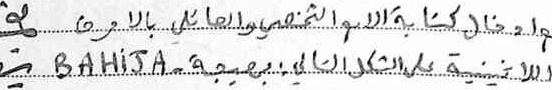 وادخال كتابة الاسم الشخصي والعائلي بالاحرف
اللاتينية على الشكل التالي: بهيجة - BAHIJA